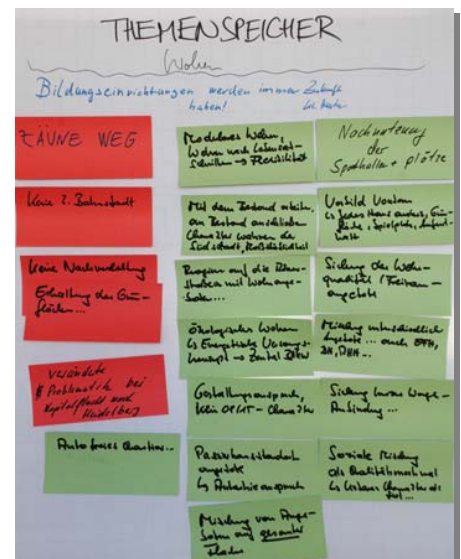 THEMENSPEICHER
Wohnen
Bildungseinrichtungen werden immer Zukunft
haben!
ZÄUNE WEG
Keine 2. Bahnstadt
Keine Nachverdichtung
Erhaltung der Grün-
flächen...
verändete
Problematik bei
Kapitalflucht nach
Heidelberg
Autofreies Quartier...
Modulares Wohnen,
Wohnen nach Lebensab-
schnitten → Flexibilität
Mit dem Bestand arbeiten,
an Bestand anschließen
Charakter wohnen der
Südstadt,
Reagieren auf die
straßen mit Wohnange-
boten...
Ökologisches Wohnen
↳ Energetisch
→ Zentral
Gestaltungsanspruch,
kein Charakter
Passivhausstandard
angebote
↳ Autarkieanspruch
Mischung von Ange-
boten auf gesamter
Fläche
Nachnutzung
der
Sporthallen + plätze
Vorbild Vauban
↳ Jedes Haus anders, Grün-
fläche, Spielplatz, Aufent-
halt
Sicherung der Wohn-
qualität / Freiraum-
angebote
Mischung unterschiedlich
Angebote ... auch EFH,
DH, DHH...
Sicherung kurzer Wege -
Anbindung ...
Soziale Mischung
als Qualitätsmerkmal
↳ Urbaner Charakter als
Ziel ...